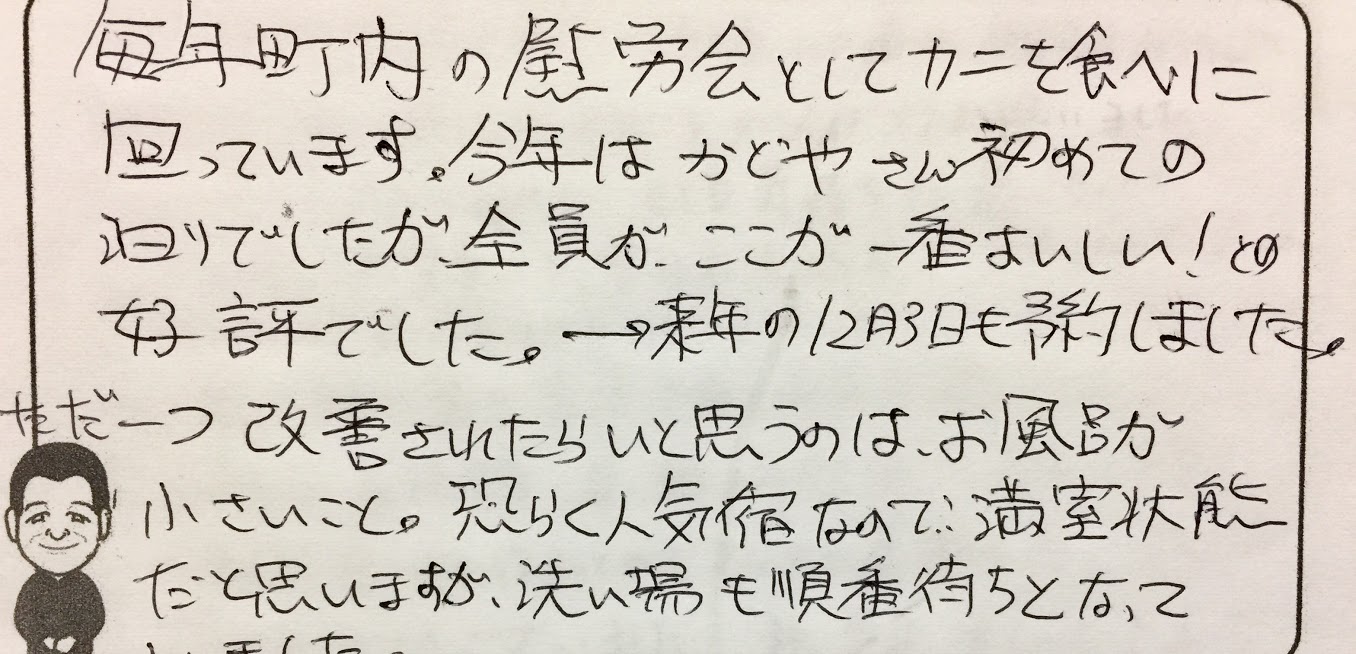 毎年町内の慰労会としてカニを食べに
回っています。今年はかどやさん初めての
泊りでしたが、全員が、ここが一番おいしい!との
好評でした。→来年の12月3日も予約しました。
ただ一つ改善されたらいと思うのは、お風呂が
小さいこと。恐らく人気宿なので、満室状態
だと思いますが、洗い場も順番待ちとなって
いました。